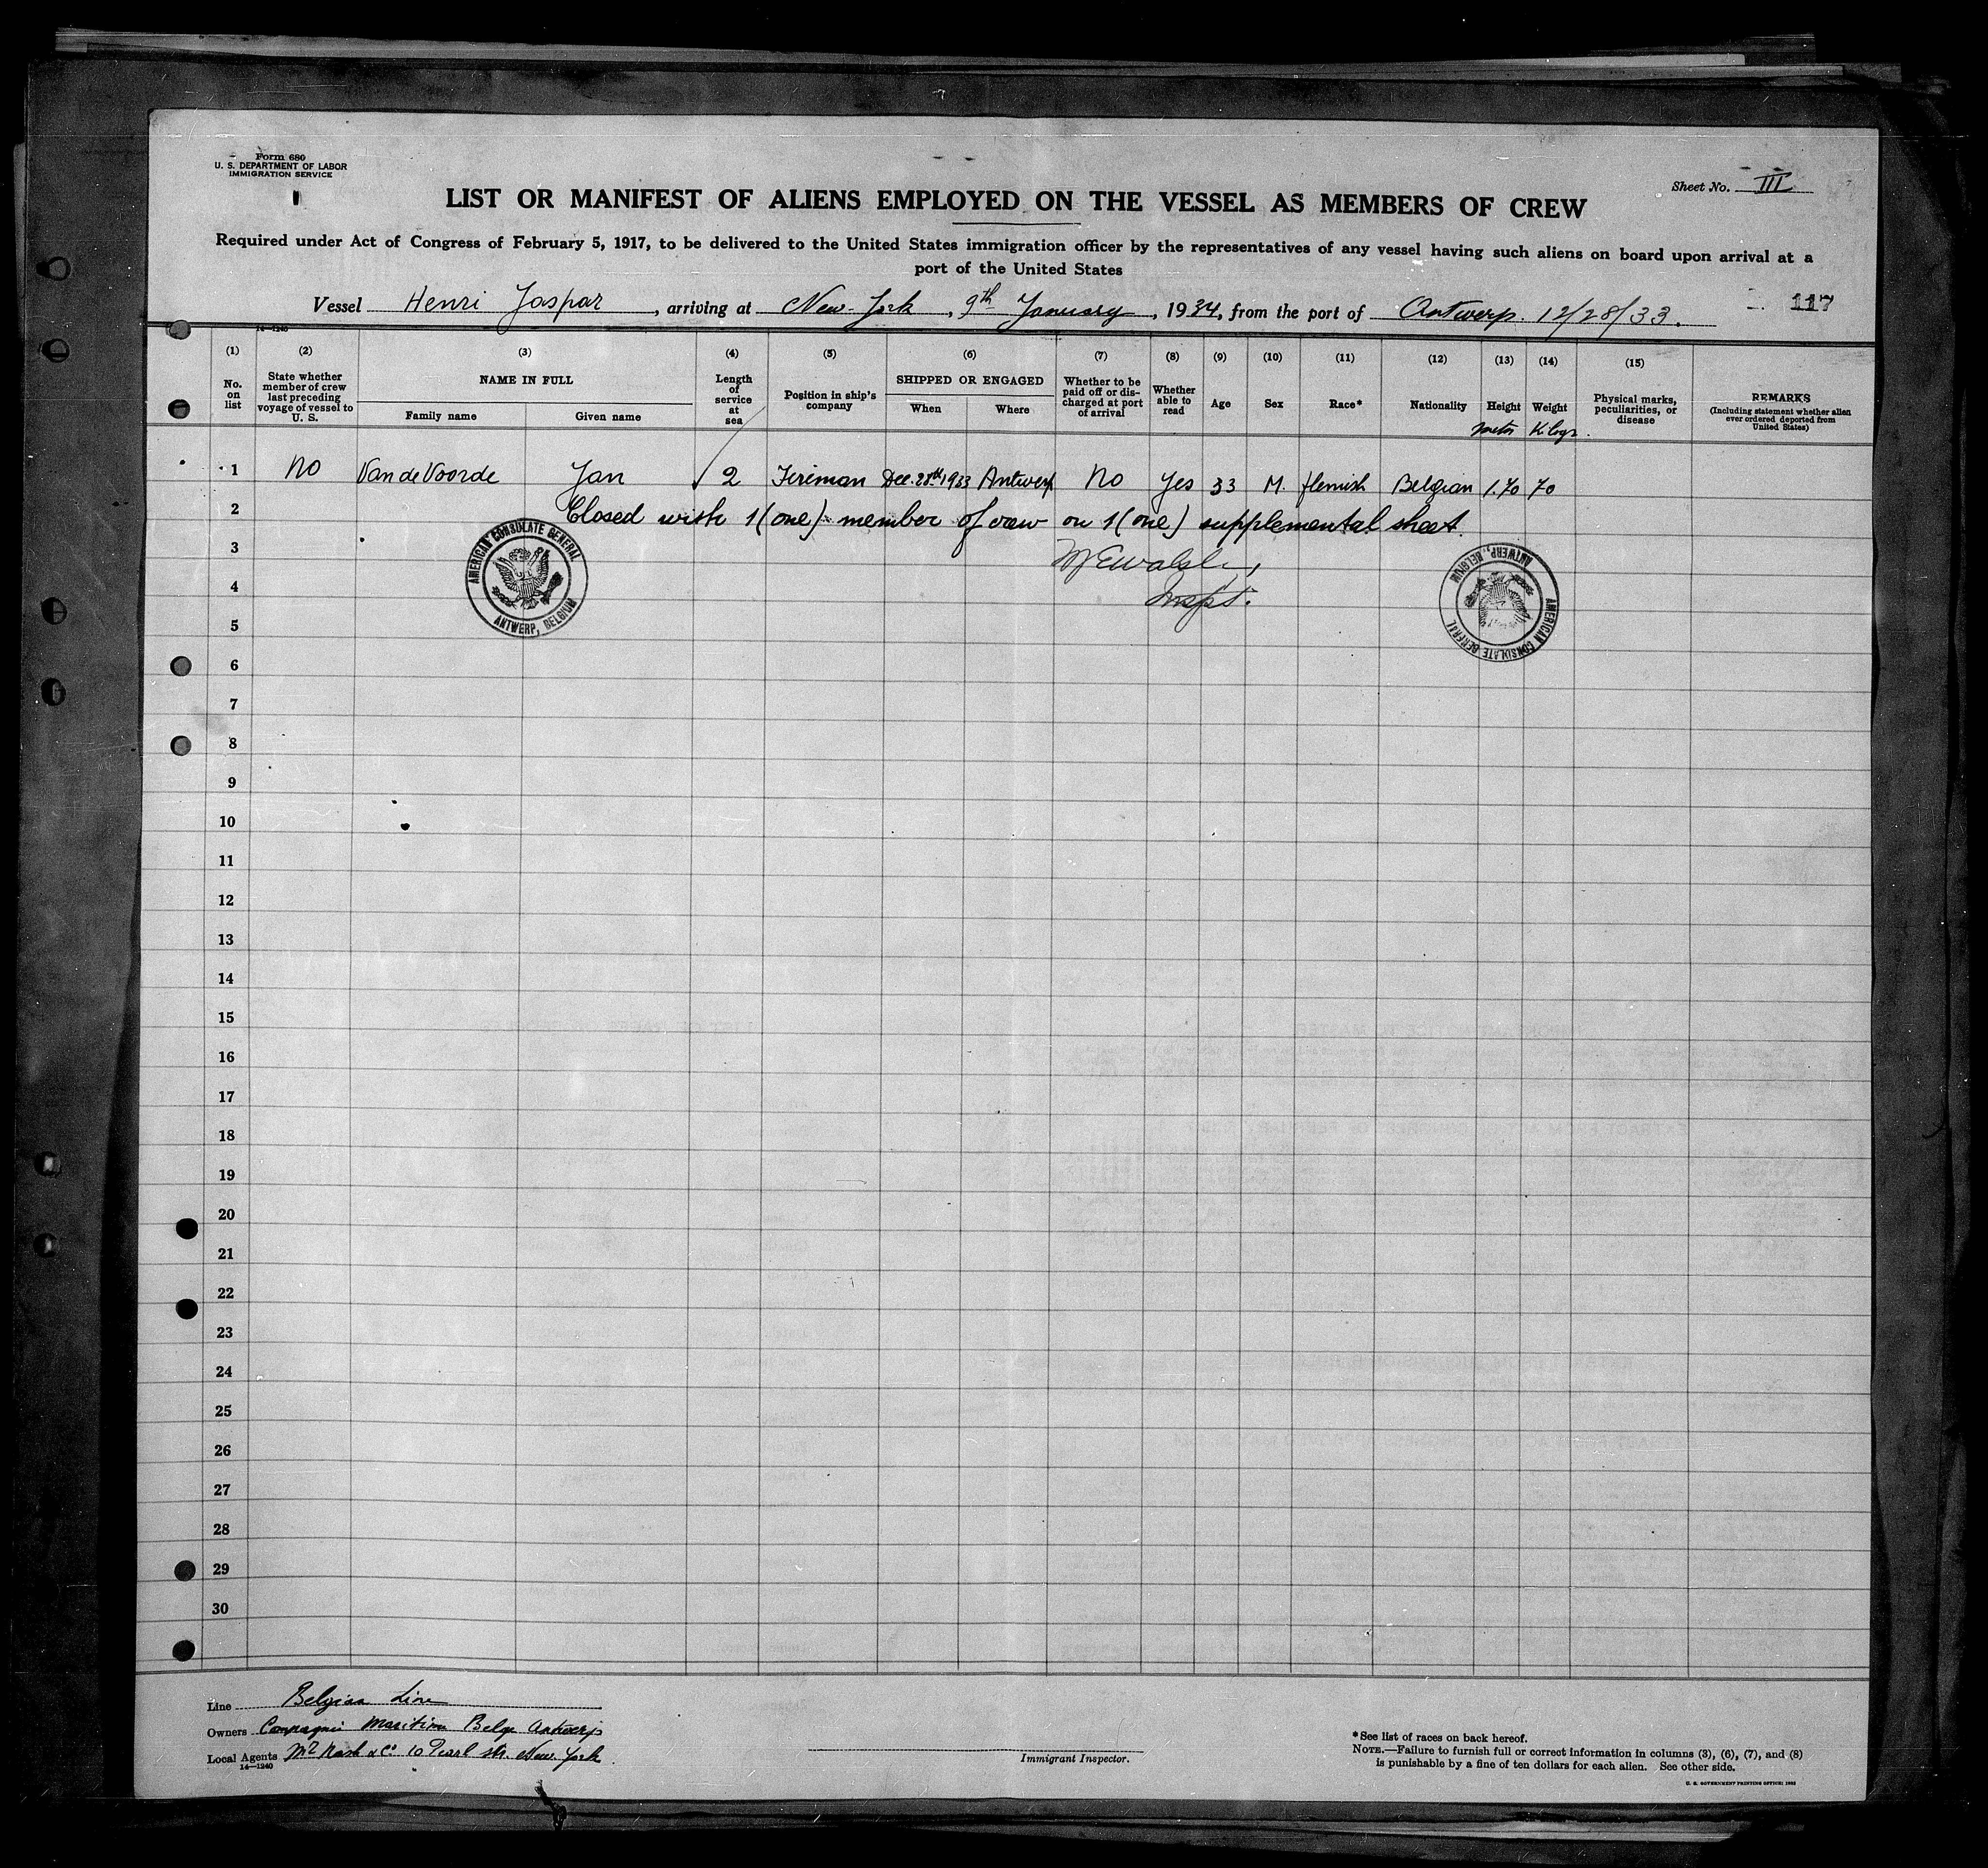 Form 680
U. S. DEPARTMENT OF LABOR
IMMIGRATION SERVICE
Sheet No. III
LIST OR MANIFEST OF ALIENS EMPLOYED ON THE VESSEL AS MEMBERS OF CREW
Required under Act of Congress of February 5, 1917, to be delivered to the United States immigration officer by the representatives of any vessel having such aliens on board upon arrival at a
port of the United States
Vessel Henri Jaspar, arriving at New-York, 9th January, 1934, from the port of Antwerp. 12/28/33.
117
14—1240
(1) (2) (3) (4) (5) (6) (7) (8) (9) (10) (11) (12) (13) (14) (15)
No. on list
State whether member of crew last preceding voyage of vessel to U. S.
NAME IN FULL
Family name
Given name
Length of service at sea
Position in ship's company
SHIPPED OR ENGAGED
When
Where
Whether to be paid off or discharged at port of arrival
Whether able to read
Age
Sex
Race*
Nationality
Height
Weight Kilogr.
Physical marks, peculiarities, or disease
REMARKS
(Including statement whether alien ever ordered deported from United States)
1 No Van de Voorde Jan √ 2 Fireman Dec. 28th 1933 Antwerp No Yes 33 M. flemish Belgian 1.70 70
2 Closed with 1 (one) member of crew on 1 (one) supplemental sheet.
3 M E Walsh,
4 Inspt.
5
6
7
8
9
10
11
12
13
14
15
16
17
18
19
20
21
22
23
24
25
26
27
28
29
30
AMERICAN CONSULATE GENERAL
ANTWERP, BELGIUM
AMERICAN CONSULATE GENERAL
ANTWERP, BELGIUM
Line Belgian Line
Owners Compagnie Maritime Belge Antwerp
Local Agents & Co 10 Pearl str. New-York.
14—1240
Immigrant Inspector.
*See list of races on back hereof.
NOTE.—Failure to furnish full or correct information in columns (3), (6), (7), and (8)
is punishable by a fine of ten dollars for each alien. See other side.
U. S. GOVERNMENT PRINTING OFFICE: